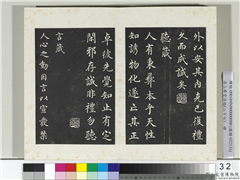 外以安其內克己復禮
久而成誠矣
聽箴
人有秉彝本乎天性
知誘物化遂亡其正
卓彼先覺知止有定
閑邪存誠非禮勿聽
言箴
人心之動因言以宣發禁
32